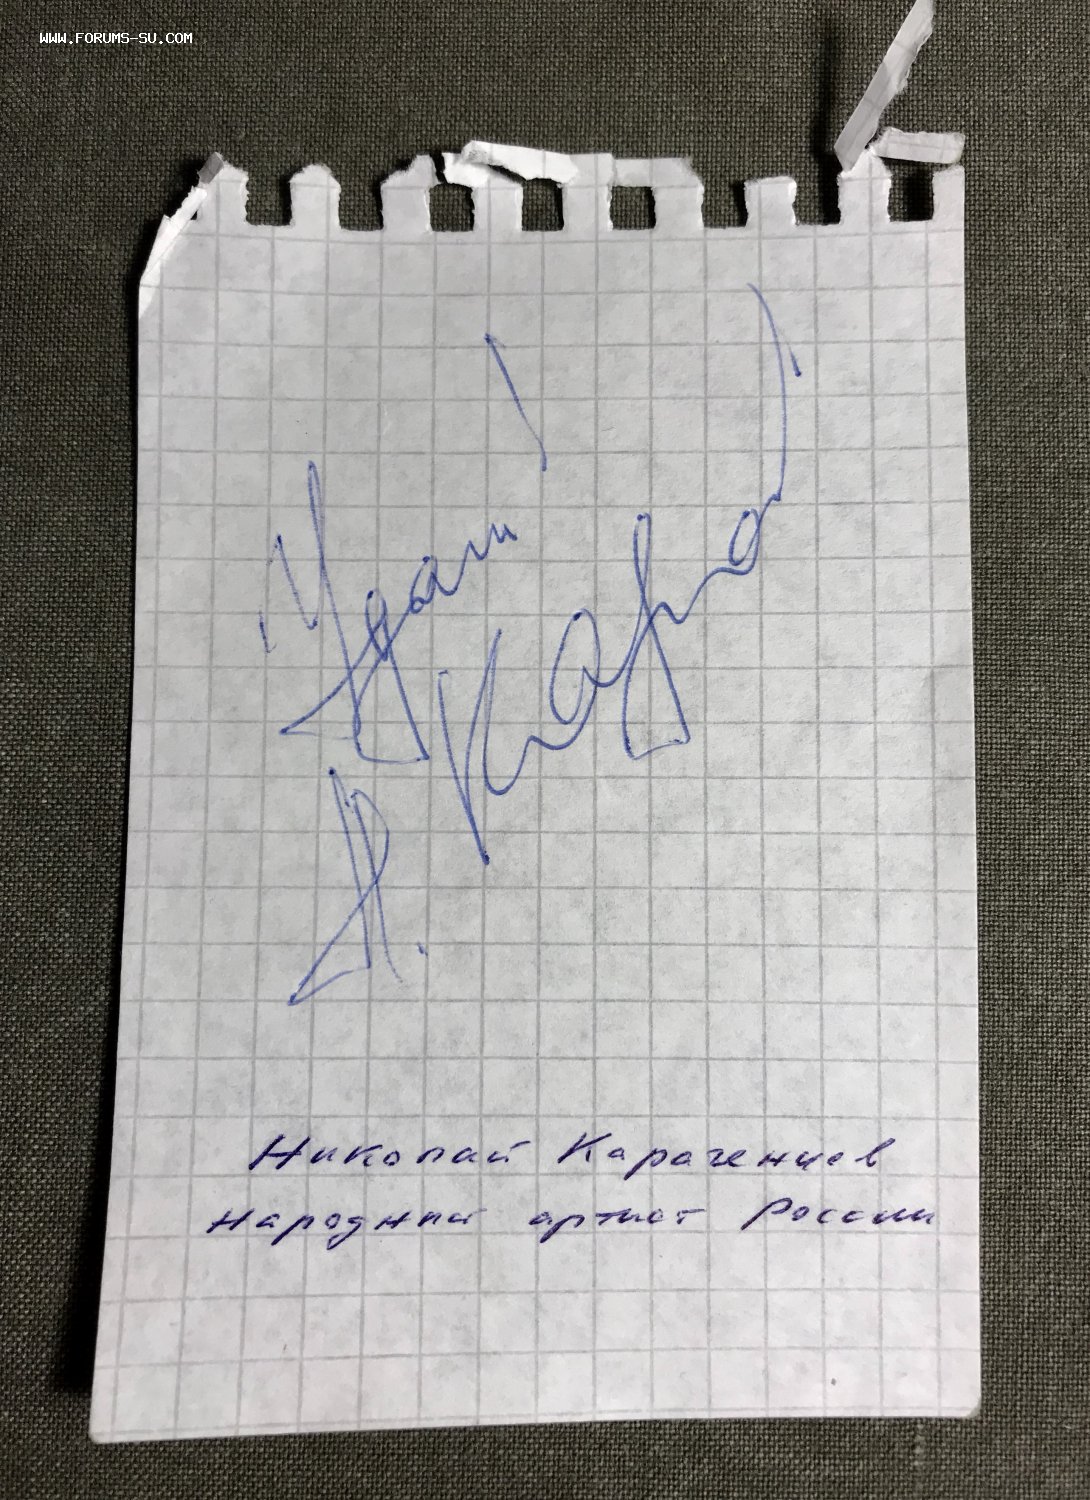 WWW.FORUMS-SU.COM
Удачи!
Николай Караченцев
народный артист России